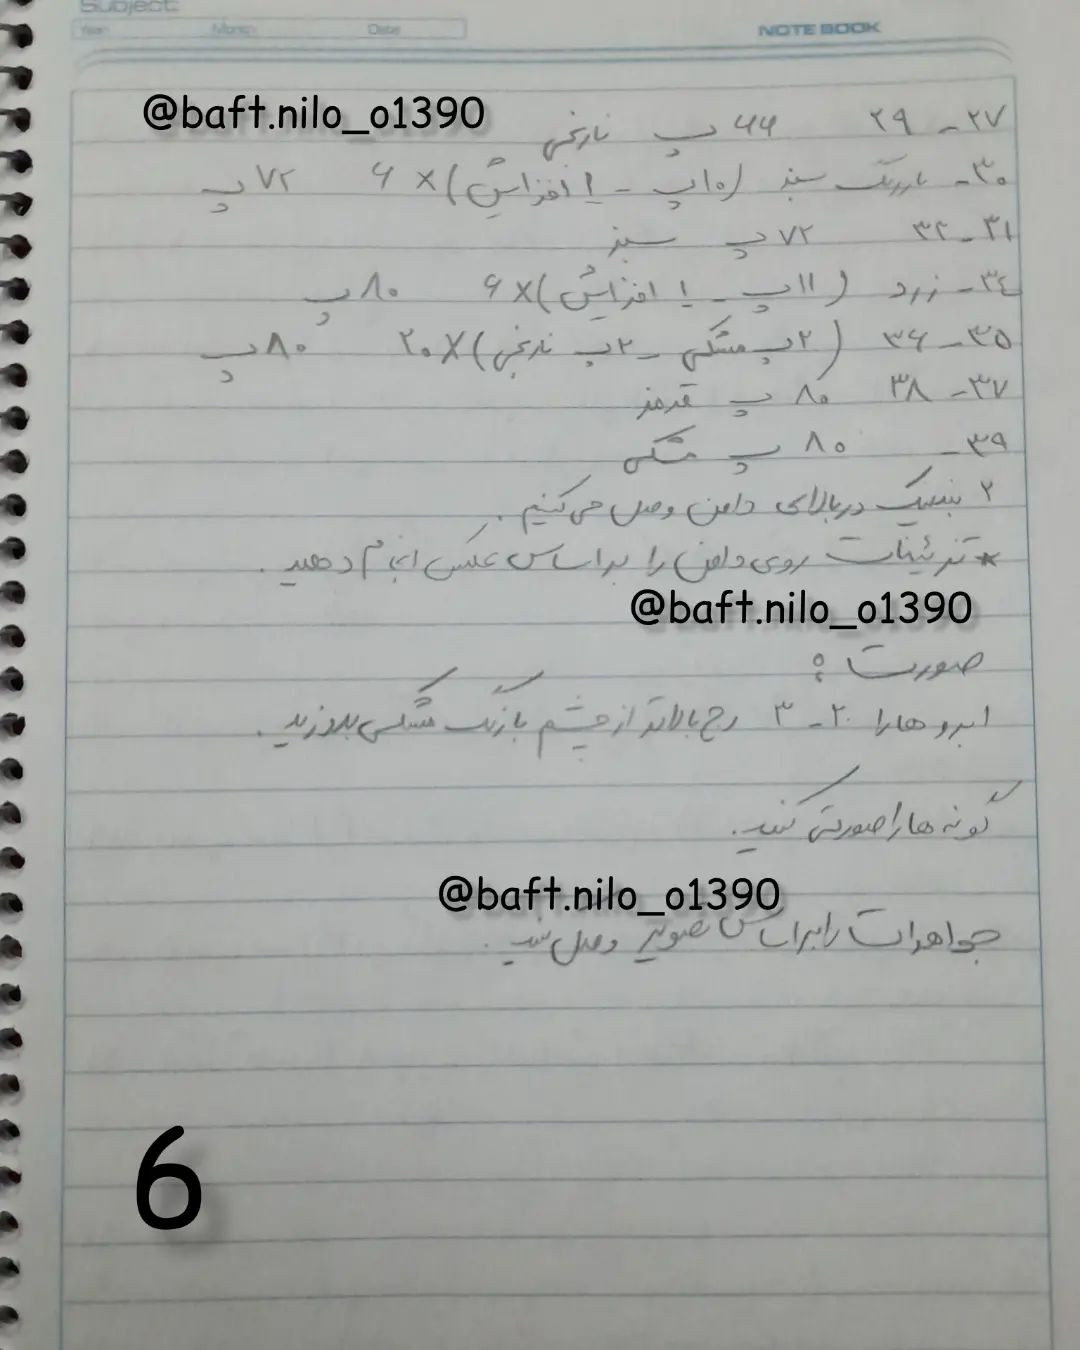 Subject:
Year: Month: Date: NOTE BOOK
@baft.nilo_o1390
۲۷-۲۹ ۶۶ پ نارنجی
۳۰- بارنگ سبز (۱۰پ - ! افزایش)×۶ ۷۲پ
۳۱-۳۲ ۷۲پ سبز
۳۴- زرد (۱۱پ - ! افزایش)×۶ ۸۰پ
۳۵-۳۶ (۲پ مشکی - ۲پ نارنجی)×۲۰ ۸۰پ
۳۷-۳۸ ۸۰ پ قرمز
۳۹- ۸۰ پ مشکی
۲ بندینک دربالای دامن وصل می کنیم.
* تزئینات روی دامن را براساس عکس انجام دهید.
@baft.nilo_o1390
صورت:
ابرو هارا ۲-۳ رج بالاتر از چشم با رنگ مشکی بدوزید.
گونه هارا صورتی کنید.
@baft.nilo_o1390
جواهرات را براساس تصویر وصل کنید.
6